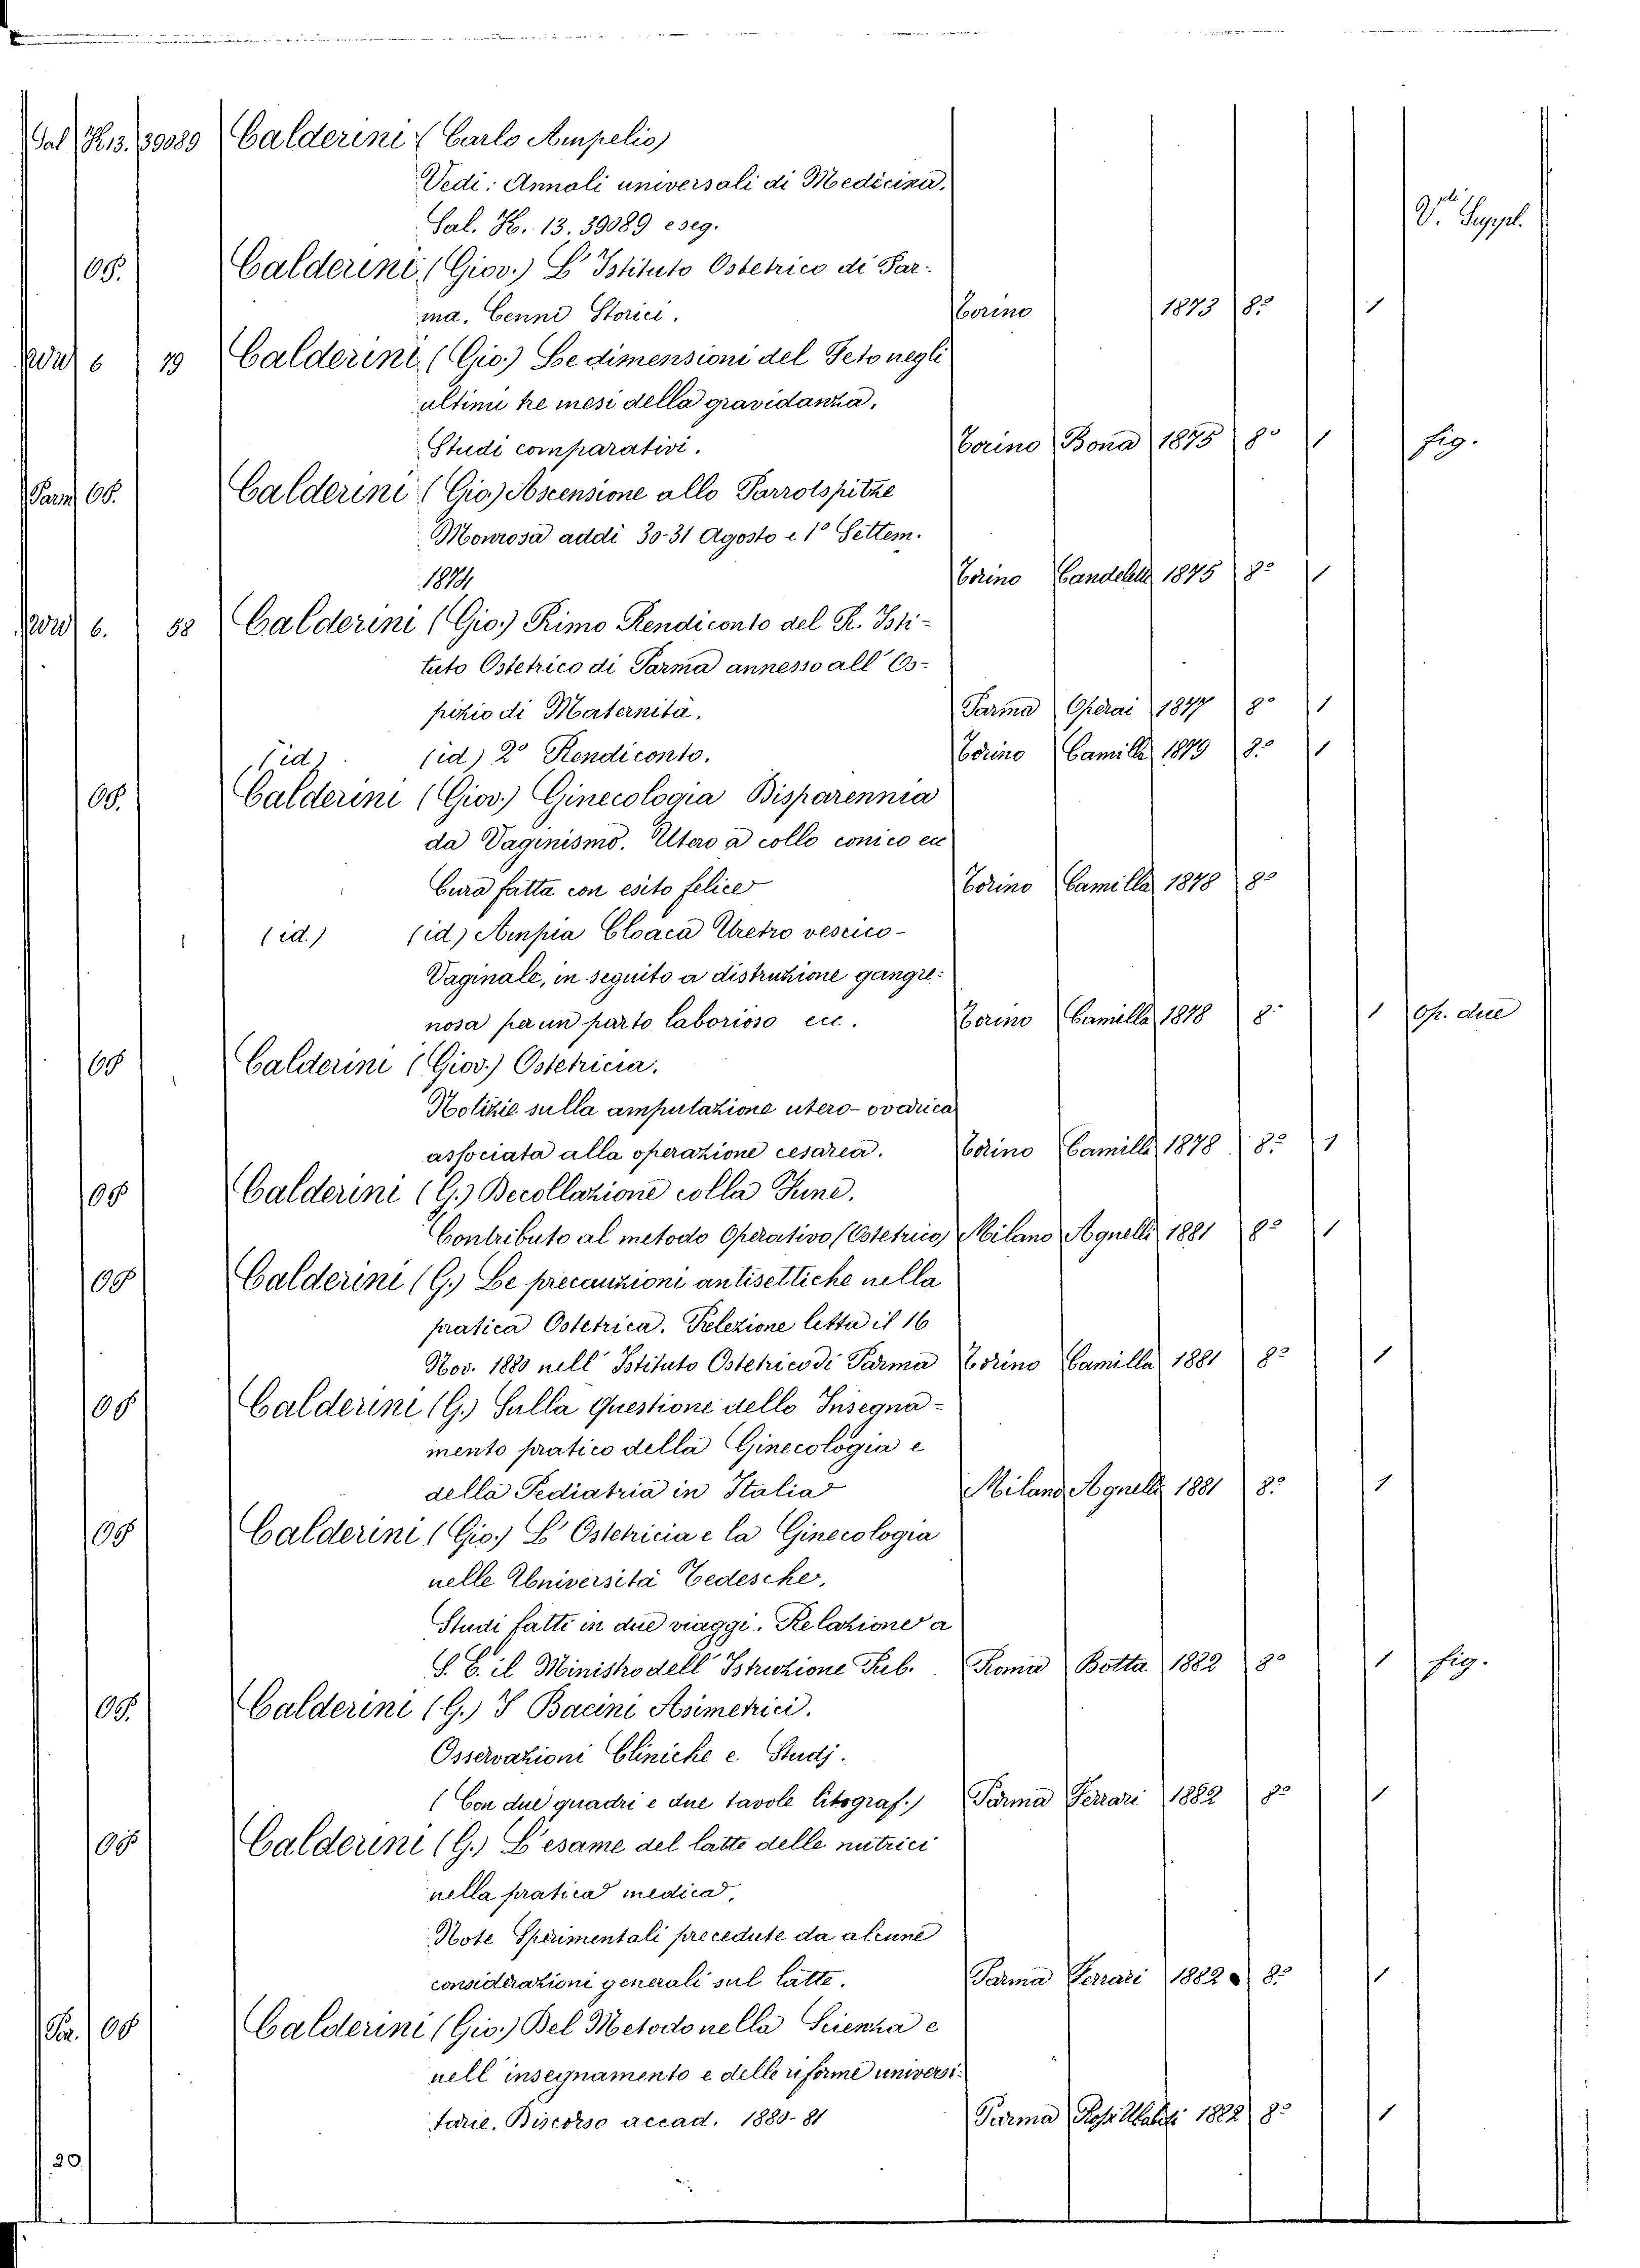 Sal. H. 13. 39089 Calderini (Carlo Ampelio)
Vedi: Annali universali di Medicina.
Sal. H. 13. 39089 e seg.
V. Suppl.
Calderini (Giov.) L'Istituto Ostetrico di Par-
ma. Cenni Storici. Torino 1873 8° 1
6 19 Calderini (Gio.) Le dimensioni del Feto negli
ultimi tre mesi della gravidanza.
Studi comparativi. Torino Bona 1875 8° 1 fig.
Calderini (Gio.) Ascensione allo Parrotspitze
Monrosa addì 30-31 Agosto e 1° Settem.
1874 Torino 1875 8° 1
6. 58 Calderini (Gio.) Primo Rendiconto del R. Isti-
tuto Ostetrico di Parma annesso all'Os-
pizio di Maternità. Parma Operai 1877 8° 1
(id) (id) 2° Rendiconto. Torino Camilla 1879 8° 1
Calderini (Giov.) Ginecologia Disparennia
da Vaginismo. Utero a collo conico ecc
Cura fatta con esito felice Torino Camilla 1878 8°
(id.) (id) Ampia Cloaca Uretro vescico-
Vaginale, in seguito a distruzione gangre-
nosa per un parto laborioso ecc. Torino Camilla 1878 8° 1 Op. due
Calderini (Giov.) Ostetricia.
Notizie sulla amputazione utero-ovarica
associata alla operazione cesarea. Torino Camilla 1878 8° 1
Calderini (G.) Decollazione colla Fune.
Contributo al metodo Operativo (Ostetrico) Milano Agnelli 1881 8° 1
Calderini (G.) Le precauzioni antisettiche nella
pratica Ostetrica. Prelezione letta il 16
Nov. 1880 nell'Istituto Ostetrico di Parma Torino Camilla 1881 8° 1
Calderini (G.) Sulla Questione dello Insegna-
mento pratico della Ginecologia e
della Pediatria in Italia Milano Agnelli 1881 8° 1
Calderini (Gio.) L'Ostetricia e la Ginecologia
nelle Università Tedesche.
Studi fatti in due viaggi. Relazione a
S. E. il Ministro dell'Istruzione Pub. Roma Botta 1882 8° 1 fig.
Calderini (G.) I Bacini Asimetrici.
Osservazioni Cliniche e Studj.
(Con due quadri e due tavole litograf.) Parma Ferrari 1882 8° 1
Calderini (G.) L'esame del latte delle nutrici
nella pratica medica.
Note Sperimentali precedute da alcune
considerazioni generali sul latte. Parma Ferrari 1882 8° 1
Calderini (Gio.) Del Metodo nella Scienza e
nell'insegnamento e delle riforme universi-
tarie. Discorso accad. 1880-81 Parma Rossi Ubaldi 1882 8° 1
20